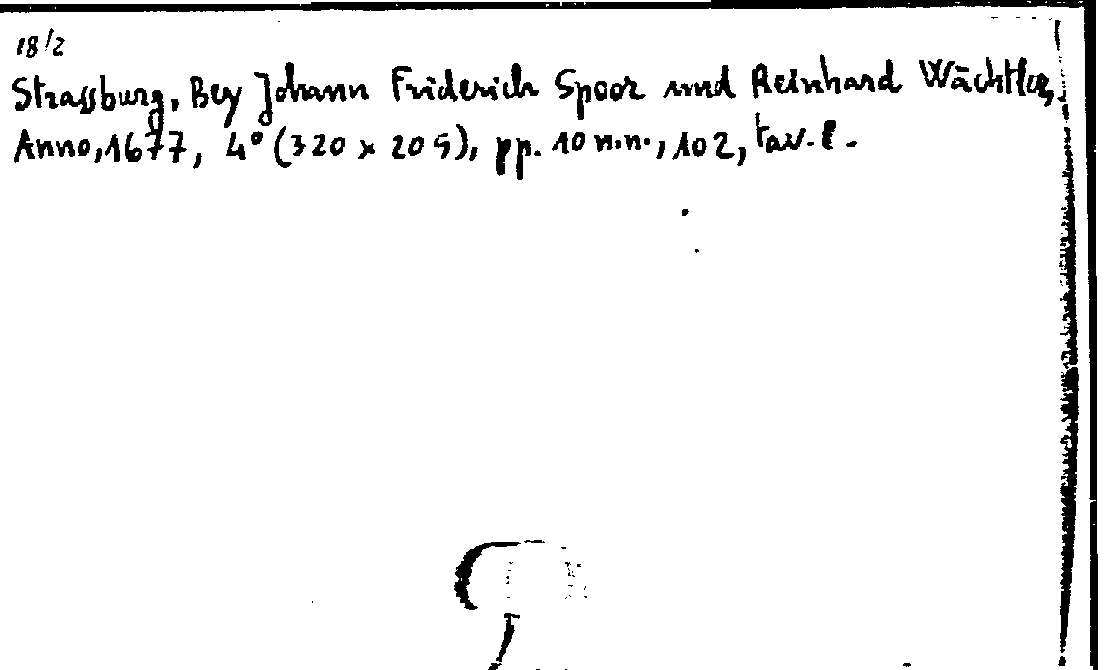 18/2
Strassburg, Bey Johann Friderich Spoor und Reinhard Wächtler,
Anno, 1677, 4° (320 x 205), pp. 10 n.n., 102, tav.